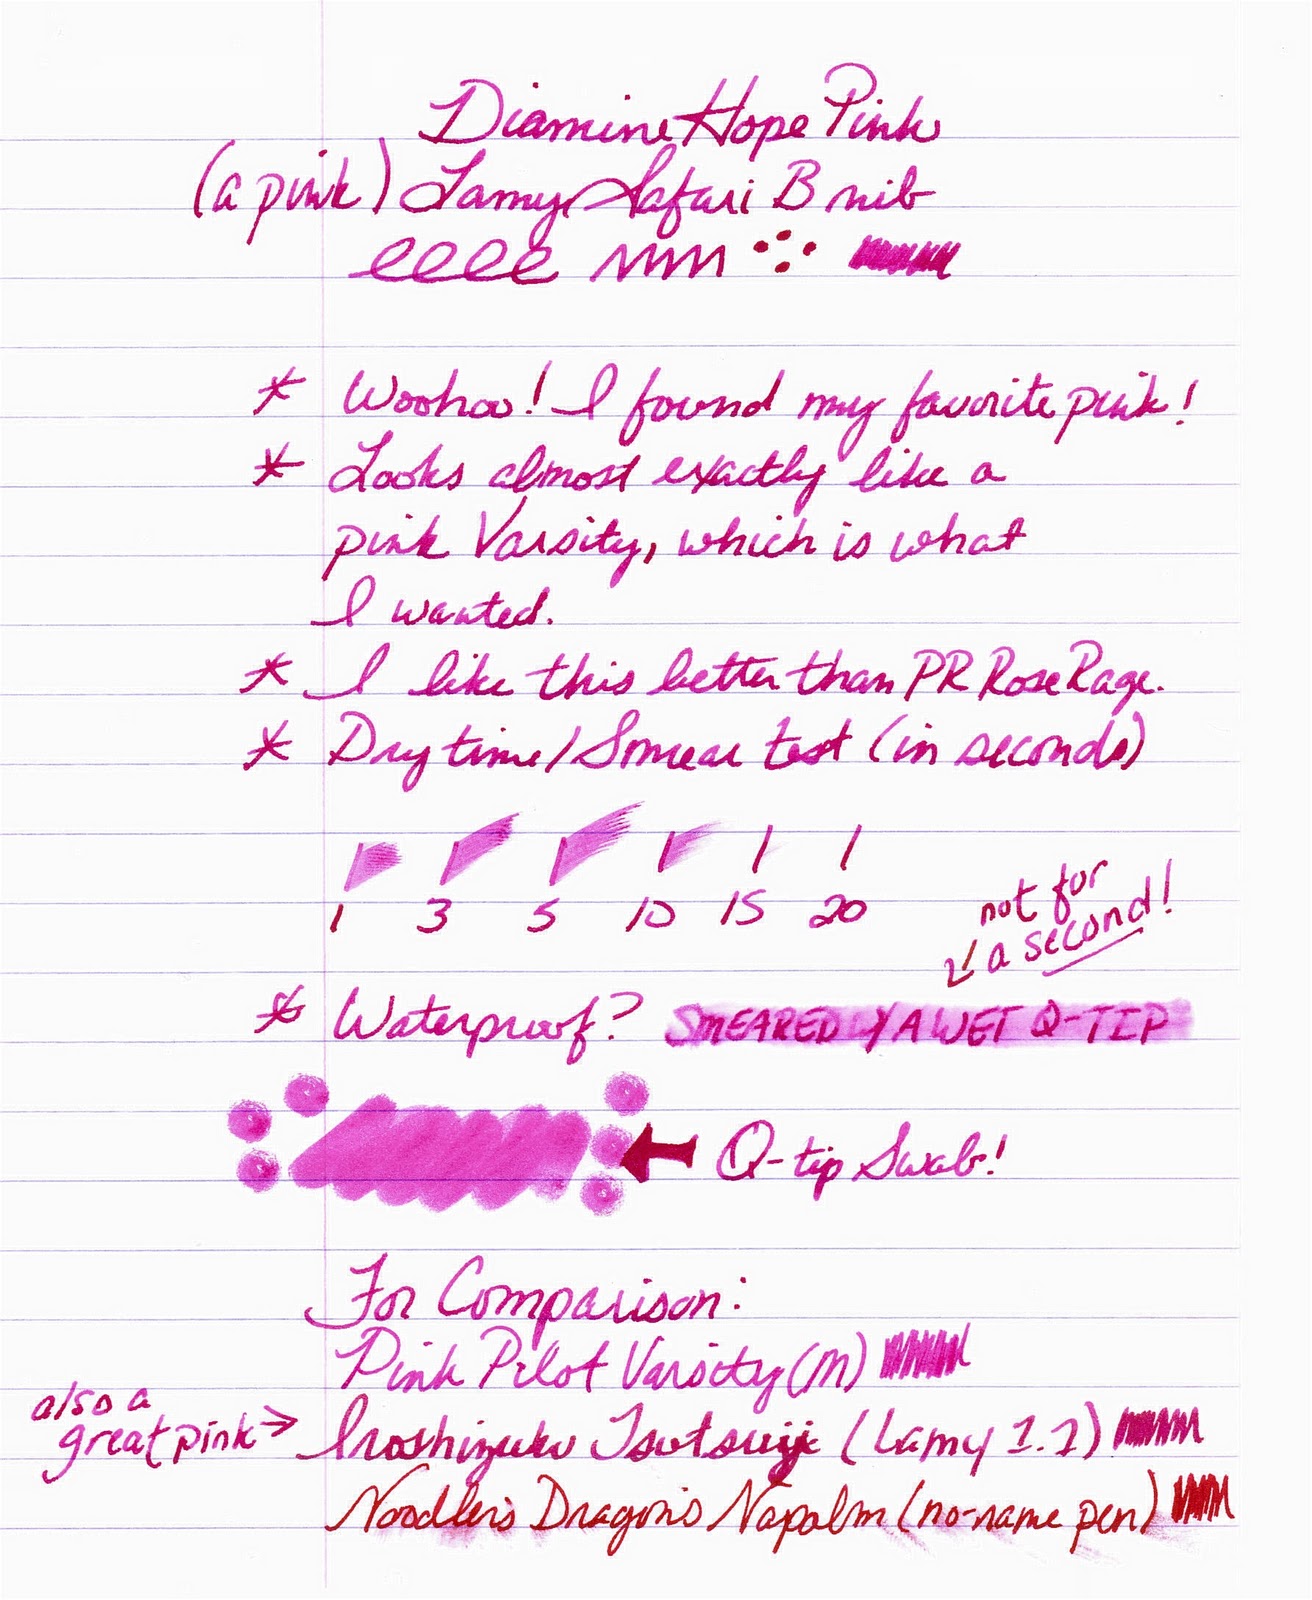 Diamine Hope Pink
(a pink) Lamy Safari B nib
* Woohoo! I found my favorite pink!
* Looks almost exactly like a
pink Varsity, which is what
I wanted.
* I like this better than PR Rose Rage.
* Dry time/Smear test (in seconds)
1 3 5 10 15 20
not for
a second!
* Waterproof? SMEARED Y A WET Q-TIP
Q-tip Swab!
For Comparison:
Pink Pilot Varsity (M)
also a
great pink → Iroshizuku Tsutsuji (Lamy 1.1)
Noodler's Dragon's Napalm (no-name pen)